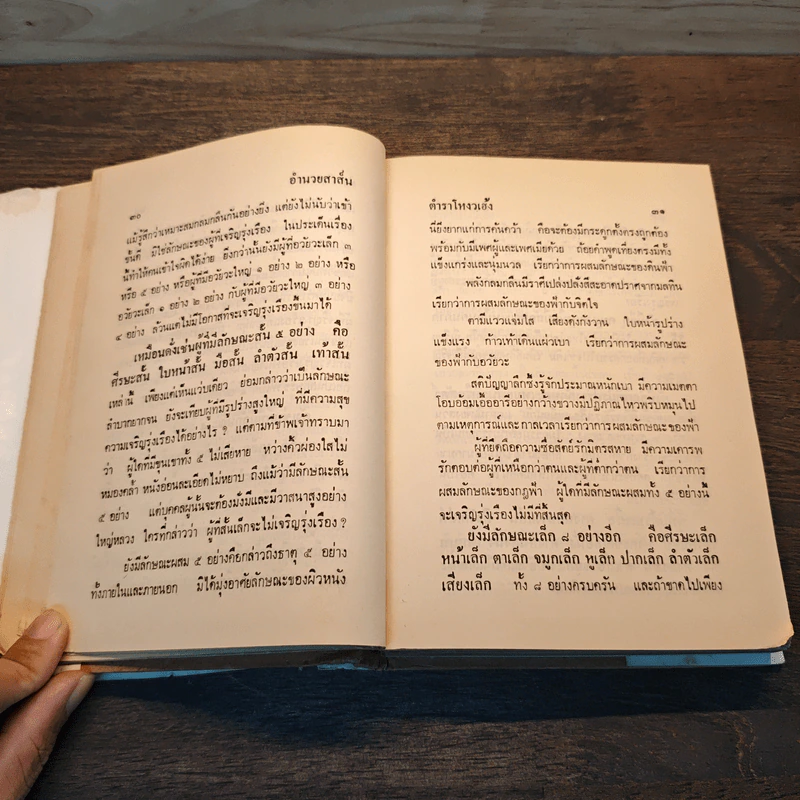 อำนวยสาส์น
๓๐
แม้รู้สึกว่าเหมาะสมกลมกลืนกันอย่างยิ่ง แต่ยังไม่นับว่าเข้า
ขั้นดี มิใช่ลักษณะของผู้ที่เจริญรุ่งเรือง ในประเด็นเรื่อง
นี้ทำให้คนเข้าใจผิดได้ง่าย ยิ่งกว่านั้นยังมีผู้ที่อวัยวะเล็ก ๓
หรือ ๕ อย่าง หรือผู้ที่มีอวัยวะใหญ่ ๑ อย่าง ๒ อย่าง หรือ
อวัยวะเล็ก ๑ อย่าง ๒ อย่าง กับผู้ที่มีอวัยวะใหญ่ ๓ อย่าง
๔ อย่าง ล้วนแต่ไม่มีโอกาสที่จะเจริญรุ่งเรืองขึ้นมาได้
เหมือนดั่งเช่นผู้ที่มีลักษณะสั้น ๕ อย่าง คือ
ศีรษะสั้น ใบหน้าสั้น มือสั้น ลำตัวสั้น เท้าสั้น
เหล่านี้ เพียงแต่เห็นแว่บเดียว ย่อมกล่าวว่าเป็นลักษณะ
ลำบากยากจน ยังจะเทียบผู้ที่มีรูปร่างสูงใหญ่ ที่มีความสุข
ความเจริญรุ่งเรืองได้อย่างไร ? แต่ตามที่ข้าพเจ้าทราบมา
ว่า ผู้ใดที่มีขุนเขาทั้ง ๕ ไม่เสียหาย หว่างคิ้วผ่องใสไม่
หมองคล้ำ หนังอ่อนละเอียดไม่หยาบ ถึงแม้ว่ามีลักษณะสั้น
๕ อย่าง แต่บุคคลผู้นั้นจะต้องมั่งมีและมีวาสนาสูงอย่าง
ใหญ่หลวง ใครที่กล่าวว่า ผู้ที่สั้นเล็กจะไม่เจริญรุ่งเรือง ?
ยังมีลักษณะผสม ๕ อย่างคือกล่าวถึงธาตุ ๕ อย่าง
ทั้งภายในและภายนอก มิได้มุ่งอาศัยลักษณะของผิวหนัง
ตำราโหงวเฮ้ง
๓๑
นี่ยิ่งยากแก่การค้นคว้า คือจะต้องมีกระดูกตั้งตรงถูกต้อง
พร้อมกับมีเพศผู้และเพศเมียด้วย ถ้อยคำพูดเที่ยงตรงมีทั้ง
แข็งแกร่งและนุ่มนวล เรียกว่าการผสมลักษณะของดินฟ้า
พลังกลมกลืนมีราศีเปล่งปลั่งสีสะอาดปราศจากมลทิน
เรียกว่าการผสมลักษณะของฟ้ากับจิตใจ
ตามีแววแจ่มใส เสียงดังกังวาน ใบหน้ารูปร่าง
แข็งแรง ก้าวเท้าเดินแผ่วเบา เรียกว่าการผสมลักษณะ
ของฟ้ากับอวัยวะ
สติปัญญาลึกซึ้งรู้จักประมาณหนักเบา มีความเมตตา
โอบอ้อมเอื้ออารีอย่างกว้างขวางมีปฏิภาณไหวพริบหมุนไป
ตามเหตุการณ์และกาลเวลาเรียกว่าการผสมลักษณะของฟ้า
ผู้ที่ยึดถือความซื่อสัตย์รักมิตรสหาย มีความเคารพ
รักตอบต่อผู้ที่เหนือกว่าตนและผู้ที่ต่ำกว่าตน เรียกว่าการ
ผสมลักษณะของกฎฟ้า ผู้ใดที่มีลักษณะผสมทั้ง ๕ อย่างนี้
จะเจริญรุ่งเรืองไม่มีที่สิ้นสุด
ยังมีลักษณะเล็ก ๘ อย่างอีก คือศีรษะเล็ก
หน้าเล็ก ตาเล็ก จมูกเล็ก หูเล็ก ปากเล็ก ลำตัวเล็ก
เสียงเล็ก ทั้ง ๘ อย่างครบครัน และถ้าขาดไปเพียง